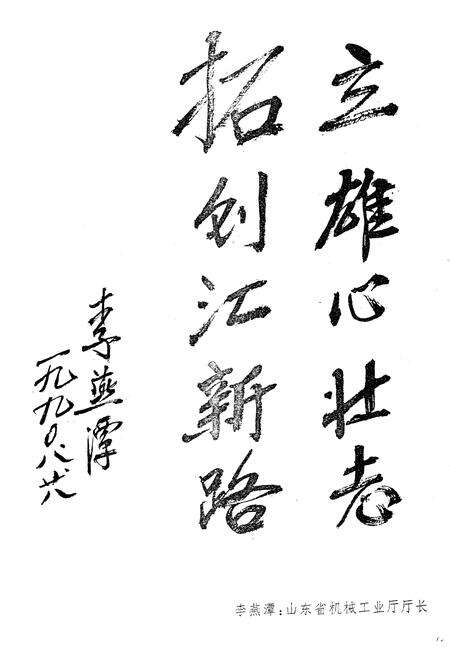 立雄心壮志
拓创汇新路
李燕潭
一九九〇、八、廿八
李燕潭：山东省机械工业厅厅长